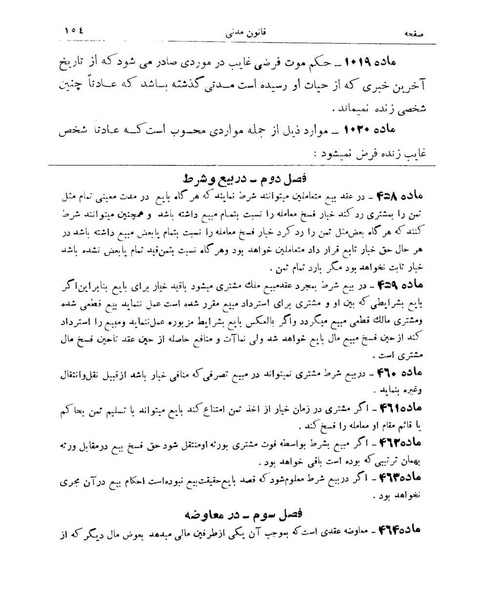 صفحه قانون مدنی ۱۵۴
ماده ۱۰۱۹ ــ حکم موت فرضی غایب در موردی صادر می شود که از تاریخ
آخرین خبری که از حیات او رسیده است مدتی گذشته باشد که عادتاً چنین
شخصی زنده نمیماند .
ماده ۱۰۲۰ ــ موارد ذیل از جمله مواردی محسوب است که عادتاً شخص
غایب زنده فرض نمیشود :
فصل دوم ــ در بیع و شرط
ماده ۴۵۸ ــ در عقد بیع متعاملین میتوانند شرط نمایند که هر گاه بایع در مدت معینی تمام مثل
ثمن را بمشتری رد کند خیار فسخ معامله را نسبت بتمام مبیع داشته باشد و همچنین میتوانند شرط
کنند که هر گاه بعض مثل ثمن را رد کرد خیار فسخ معامله را نسبت بتمام یا بعض مبیع داشته باشد در
هر حال حق خیار تابع قرار داد متعاملین خواهد بود و هر گاه نسبت بثمن قید تمام یا بعض نشده باشد
خیار ثابت نخواهد بود مگر بارد تمام ثمن .
ماده ۴۵۹ ــ در بیع شرط بمجرد عقد مبیع ملک مشتری میشود باقید خیار برای بایع بنابراین اگر
بایع بشرایطی که بین او و مشتری برای استرداد مبیع مقرر شده است عمل ننماید بیع قطعی شده
ومشتری مالک قطعی مبیع میگردد و اگر بالعکس بایع بشرایط مزبوره عمل نماید و مبیع را استرداد
کند از حین فسخ مبیع مال بایع خواهد شد ولی نماآت و منافع حاصله از حین عقد تاحین فسخ مال
مشتری است .
ماده ۴۶۰ ــ در بیع شرط مشتری نمیتواند در مبیع تصرفی که منافی خیار باشد از قبیل نقل و انتقال
وغیره بنماید .
ماده ۴۶۱ ــ اگر مشتری در زمان خیار از اخذ ثمن امتناع کند بایع میتواند با تسلیم ثمن بحاکم
یا قائم مقام او معامله را فسخ کند .
ماده ۴۶۲ ــ اگر مبیع بشرط بواسطه فوت مشتری بورثه او منتقل شود حق فسخ بیع در مقابل ورثه
بهمان ترتیبی که بوده است باقی خواهد بود .
ماده ۴۶۳ ــ اگر در بیع شرط معلوم شود که قصد بایع حقیقت بیع نبوده است احکام بیع در آن مجری
نخواهد بود .
فصل سوم ــ در معاوضه
ماده ۴۶۴ ــ معاوضه عقدی است که بموجب آن یکی از طرفین مالی میدهد بعوض مال دیگر که از